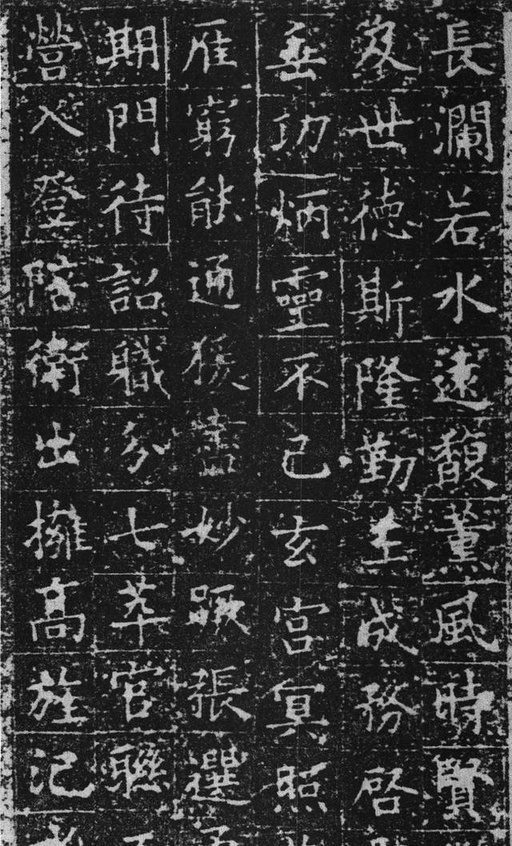 長瀾若水遠馥薰風時賢
及世德斯隆勤王成務啓
垂功炳靈不已玄宮冥照
雁窮能通猨壺妙蹶張選
期門待詔職分七萃官聯
營入登陪衛出擁高旌記